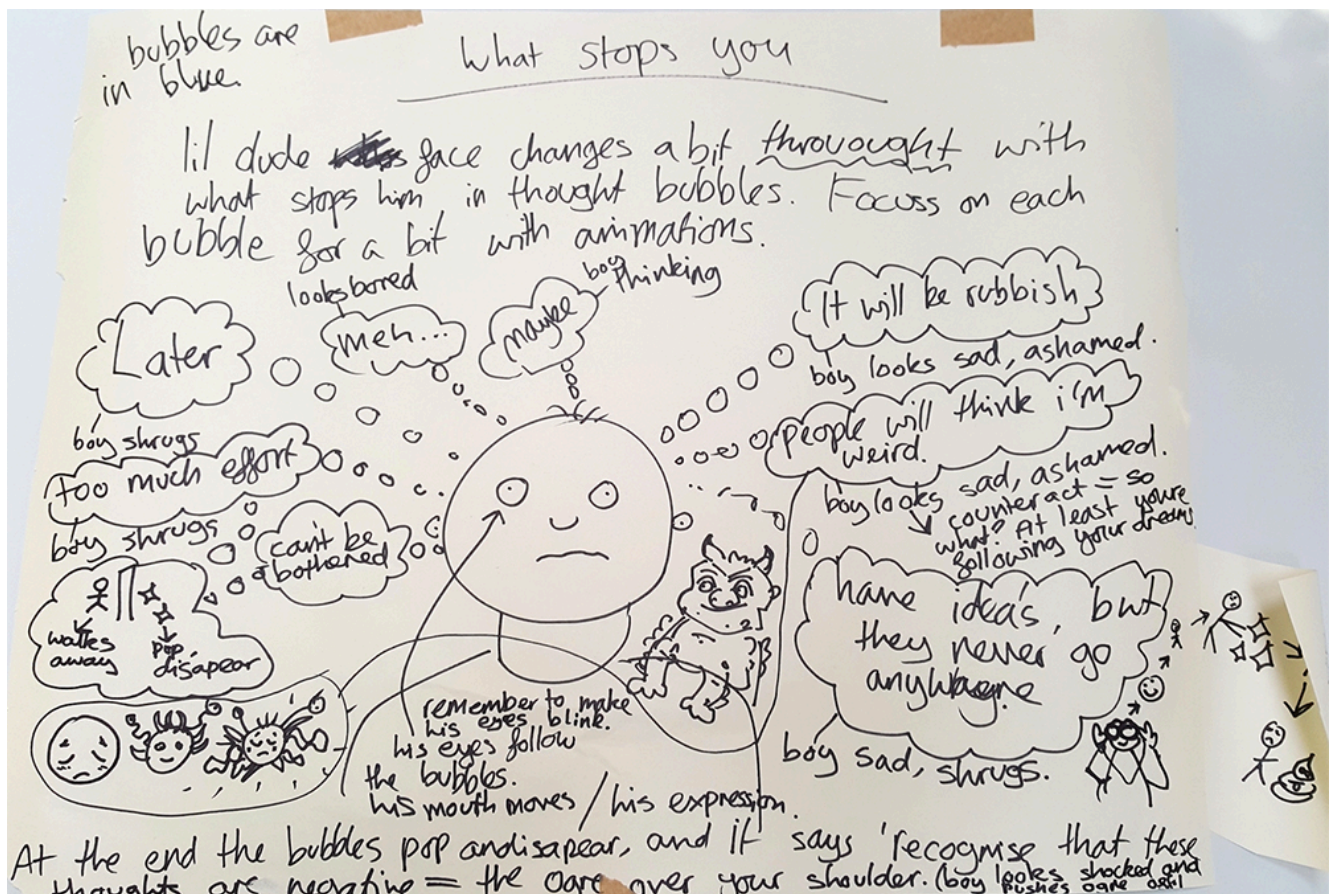 bubbles are
in blue.
What stops you
lil dude face changes a bit throuought with
what stops him in thought bubbles. Focuss on each
bubble for a bit with animations.
looks bored
boy thinking
Later
meh...
maybe
It will be rubbish
boy looks sad, ashamed.
boy shrugs
too much effort
boy shrugs
can't be
bothered
people will think i'm
weird.
boy looks sad, ashamed.
counteract = so
what? At least youre
following your dreams
walks
away
pop
disapear
have idea's, but
they never go
anywhere
boy sad, shrugs.
remember to make
his eyes blink.
his eyes follow
the bubbles.
his mouth moves / his expression.
At the end the bubbles pop and disapear, and it says 'recognise that these
thoughts are negative = the ogre over your shoulder. (boy looks shocked and
pushes ogre off)